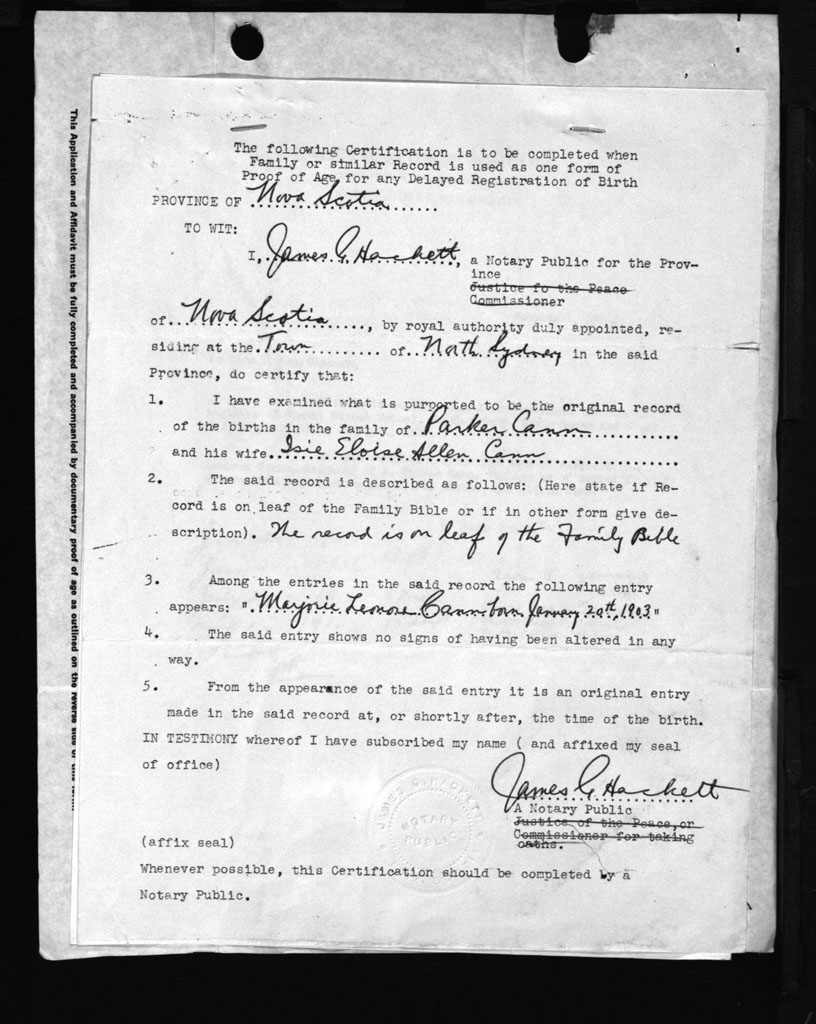 The following Certification is to be completed when
Family or similar Record is used as one form of
Proof of Age for any Delayed Registration of Birth
PROVINCE OF Nova Scotia
TO WIT:
I, James G. Hackett, a Notary Public for the Prov-
ince
Justice fo the Peace
Commissioner
of Nova Scotia, by royal authority duly appointed, re-
siding at the Town of North Sydney in the said
Province, do certify that:
1. I have examined what is purported to be the original record
of the births in the family of Parker Cann
and his wife Isie Eloise Allen Cann
2. The said record is described as follows: (Here state if Re-
cord is on leaf of the Family Bible or if in other form give de-
scription). The record is on leaf of the Family Bible
3. Among the entries in the said record the following entry
appears: "Marjorie Leonore Cann born January 20th, 1903"
4. The said entry shows no signs of having been altered in any
way.
5. From the appearance of the said entry it is an original entry
made in the said record at, or shortly after, the time of the birth.
IN TESTIMONY whereof I have subscribed my name ( and affixed my seal
of office)
James G Hackett
A Notary Public
Justice of the Peace, or
Commissioner for taking
oaths.
JAMES G. HACKETT
NOTARY
PUBLIC
(affix seal)
Whenever possible, this Certification should be completed by a
Notary Public.
This Application and Affidavit must be fully completed and accompanied by documentary proof of age as outlined on the reverse side of this